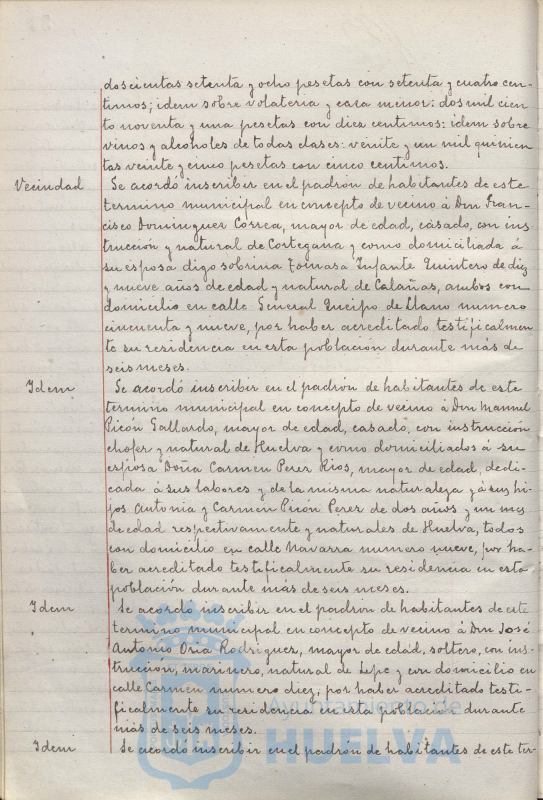 doscientas setenta y ocho pesetas con setenta y cuatro cen-
timos; idem sobre volateria y caza menor: dos mil cien
to noventa y una pesetas con diez centimos: idem sobre
vinos y alcoholes de todas clases: veinte y un mil quinien
tas veinte y cinco pesetas con cinco centimos.
Vecindad
Se acordó inscribir en el padrón de habitantes de este
termino municipal en concepto de vecino á Don Fran-
cisco Dominguez Correa, mayor de edad, casado, con ins-
trucción y natural de Cortegana y como domiciliada á
su esposa digo sobrina Tomasa Infante Quintero de diez
y nueve años de edad y natural de Calañas, ambos con
domicilio en calle General Queipo de Llano numero
cincuenta y nueve, por haber acreditado testificalmen
te su residencia en esta población durante más de
seis meses.
Idem
Se acordó inscribir en el padrón de habitantes de este
termino municipal en concepto de vecino á Don Manuel
Picón Gallardo, mayor de edad, casado, con instrucción
chofer y natural de Huelva y como domiciliados á su
esposa Doña Carmen Perez Rios, mayor de edad, dedi-
cada á sus labores y de la misma naturaleza y á sus hi-
jos Antonia y Carmen Picón Perez de dos años y un mes
de edad respectivamente y naturales de Huelva, todos
con domicilio en calle Navarra numero nueve, por ha-
ber acreditado testificalmente su residencia en esta
población durante más de seis meses.
Idem
Se acordó inscribir en el padrón de habitantes de este
termino municipal en concepto de vecino á Don José
Antonio Oria Rodriguez, mayor de edad, soltero, con ins-
trucción, marinero, natural de Lepe y con domicilio en
calle Carmen numero diez, por haber acreditado testi-
ficalmente su residencia en esta población durante
más de seis meses.
Idem
Se acordó inscribir en el padrón de habitantes de este ter-
Ayuntamiento de
HUELVA